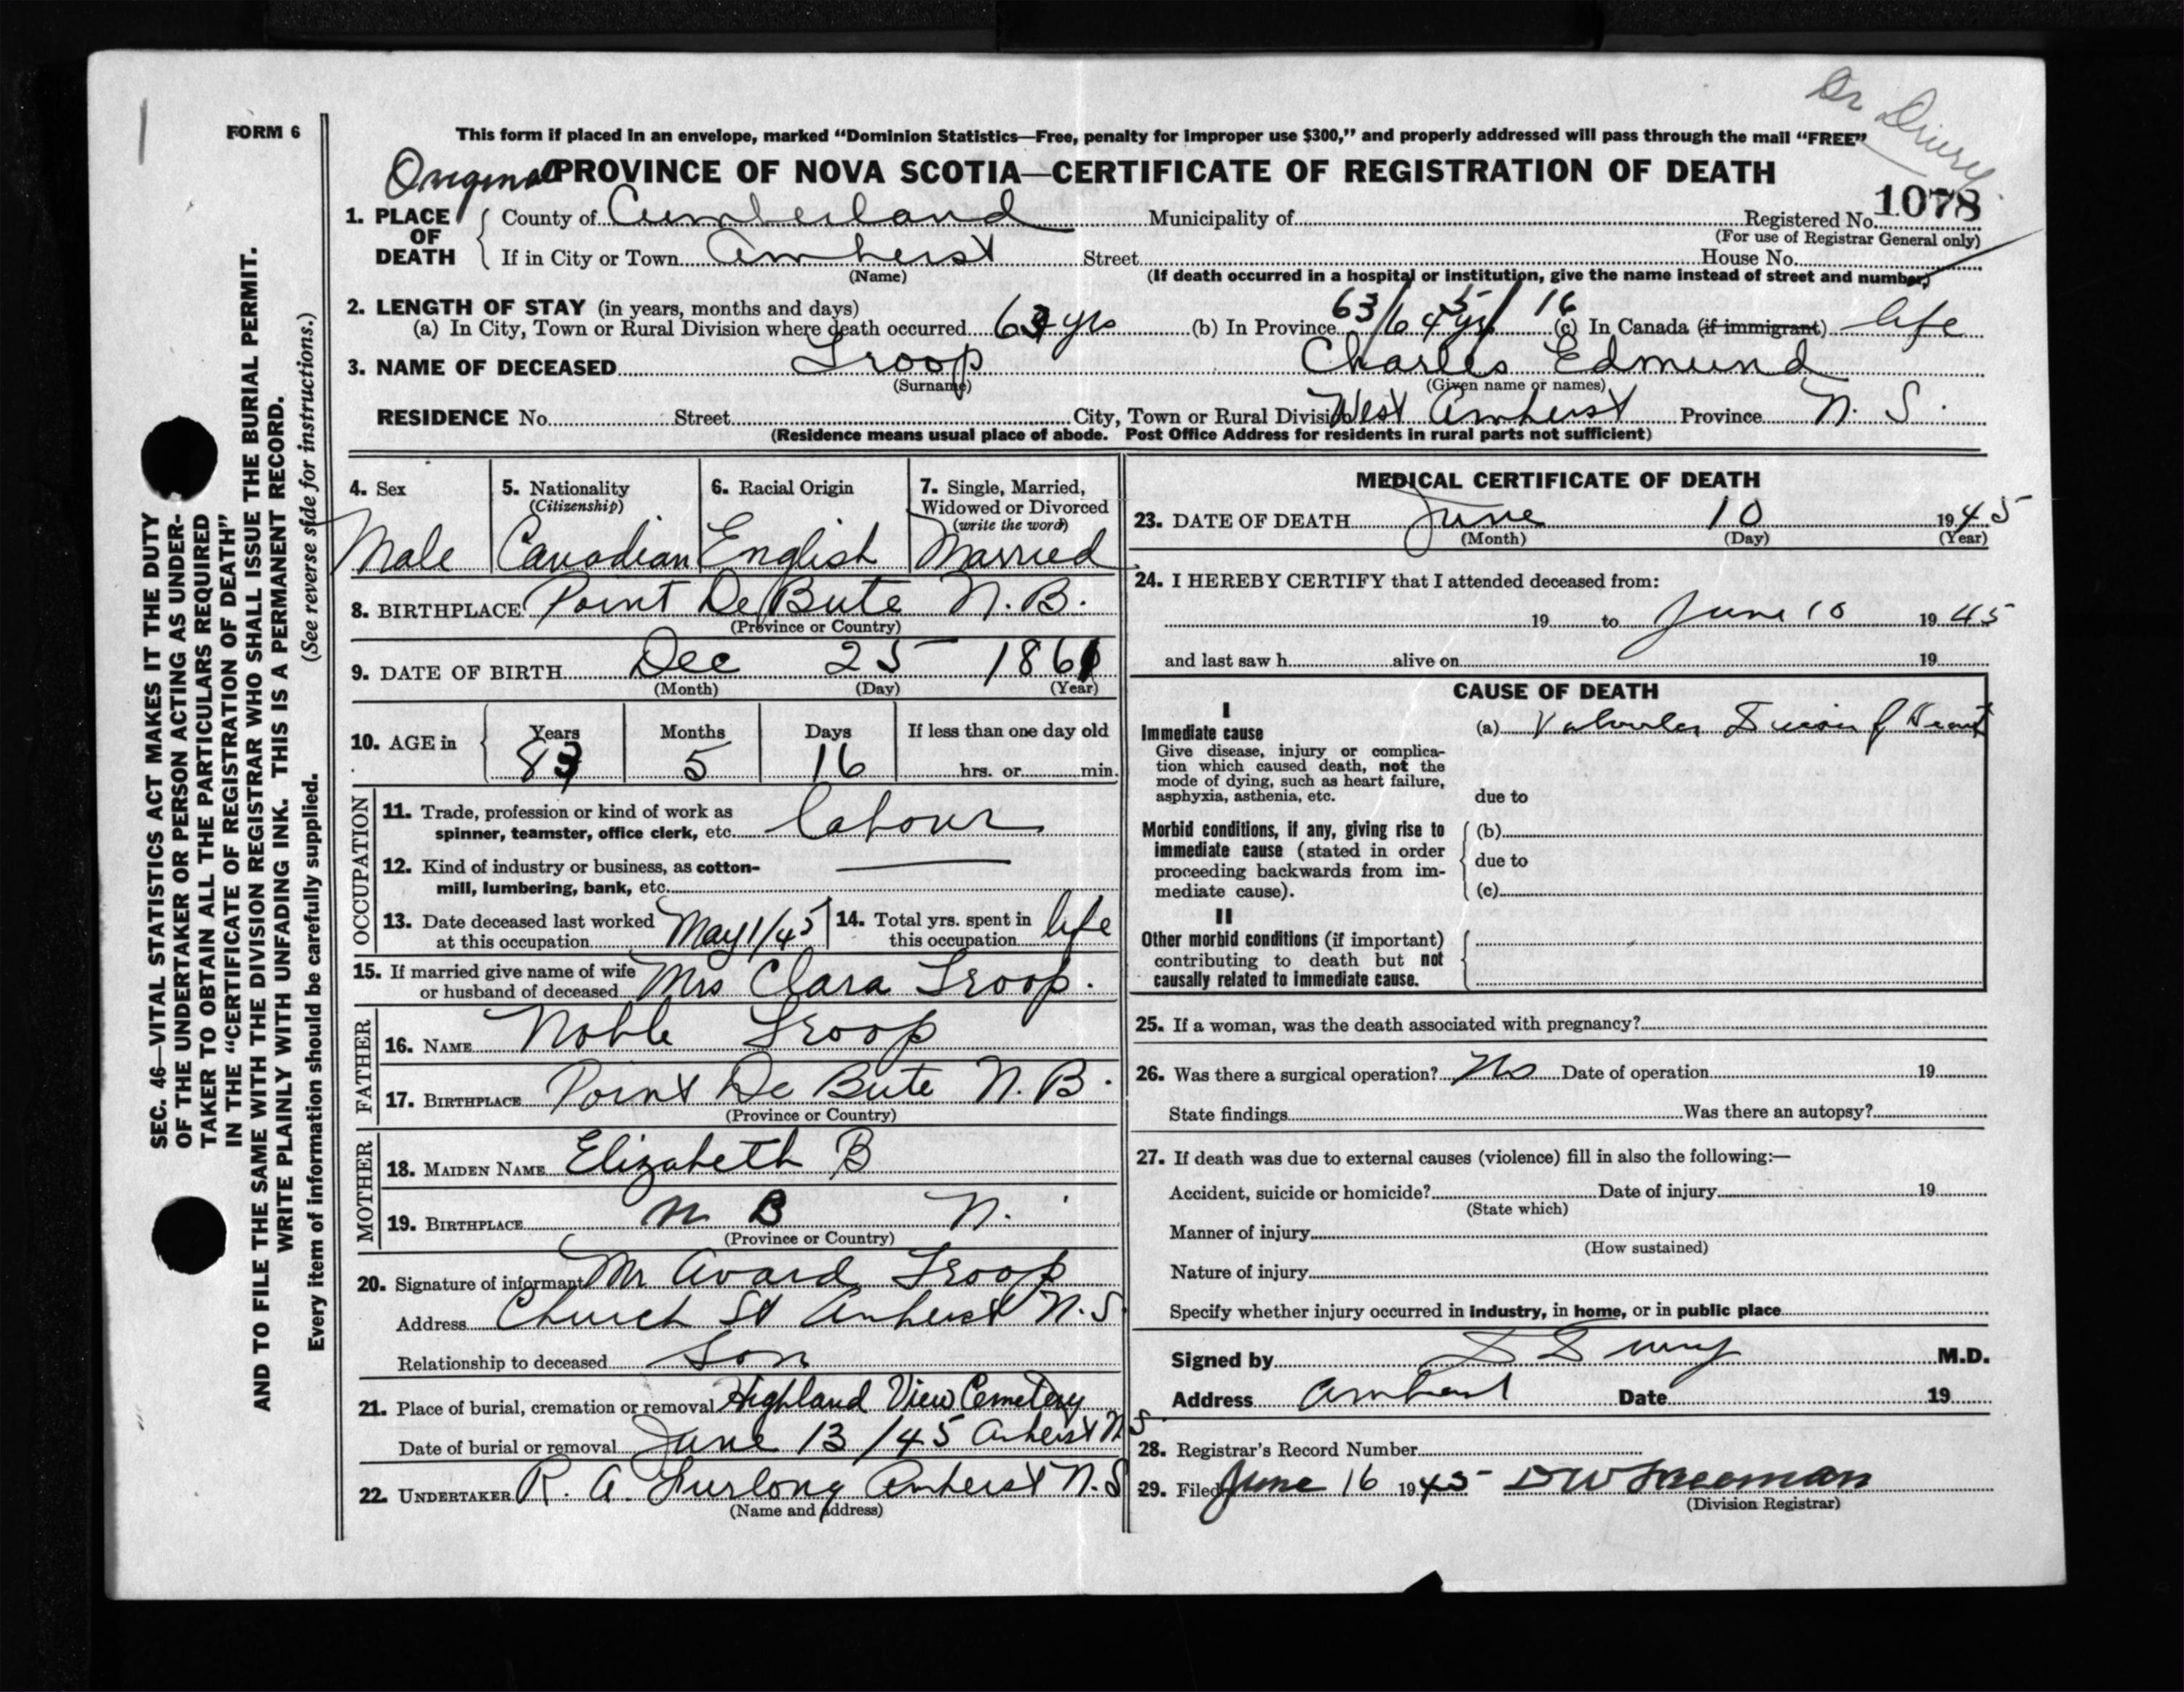 Dr
FORM 6
This form if placed in an envelope, marked “Dominion Statistics—Free, penalty for improper use $300,” and properly addressed will pass through the mail “FREE”
Original PROVINCE OF NOVA SCOTIA—CERTIFICATE OF REGISTRATION OF DEATH
1078
1. PLACE OF DEATH County of Cumberland Municipality of Registered No.
(For use of Registrar General only)
If in City or Town Amherst Street House No.
(Name) (If death occurred in a hospital or institution, give the name instead of street and number)
2. LENGTH OF STAY (in years, months and days)
(a) In City, Town or Rural Division where death occurred 63 yrs (b) In Province 63/5/16 64 yrs (c) In Canada (if immigrant) life
3. NAME OF DECEASED Troop Charles Edmund
(Surname) (Given name or names)
RESIDENCE No. Street City, Town or Rural Division West Amherst Province N. S.
(Residence means usual place of abode. Post Office Address for residents in rural parts not sufficient)
4. Sex 5. Nationality 6. Racial Origin 7. Single, Married,
(Citizenship) Widowed or Divorced
(write the word)
Male Canadian English Married
8. BIRTHPLACE Point De Bute N.B.
(Province or Country)
9. DATE OF BIRTH Dec 25 1861
(Month) (Day) (Year)
10. AGE in Years Months Days If less than one day old
83 5 16 hrs. or min.
OCCUPATION
11. Trade, profession or kind of work as
spinner, teamster, office clerk, etc. labour
12. Kind of industry or business, as cotton-
mill, lumbering, bank, etc.
13. Date deceased last worked
at this occupation May 1/45
14. Total yrs. spent in
this occupation life
15. If married give name of wife
or husband of deceased Mrs Clara Troop.
FATHER
16. NAME Noble Troop
17. BIRTHPLACE Point De Bute N.B.
(Province or Country)
MOTHER
18. MAIDEN NAME Elizabeth B
19. BIRTHPLACE N B N.
(Province or Country)
20. Signature of informant Mr Avard Troop
Address Church St Amherst N.S
Relationship to deceased Son
21. Place of burial, cremation or removal Highland View Cemetery
Date of burial or removal June 13/45 Amherst N S.
22. UNDERTAKER R. A. Furlong Amherst N.S
(Name and address)
MEDICAL CERTIFICATE OF DEATH
23. DATE OF DEATH June 10 1945
(Month) (Day) (Year)
24. I HEREBY CERTIFY that I attended deceased from:
19 to June 10 1945
and last saw h alive on 19
CAUSE OF DEATH
I
Immediate cause
(a) Valvular of Heart
Give disease, injury or complica-
tion which caused death, not the
mode of dying, such as heart failure,
asphyxia, asthenia, etc.
due to
Morbid conditions, if any, giving rise to
immediate cause (stated in order
proceeding backwards from im-
mediate cause).
(b)
due to
(c)
II
Other morbid conditions (if important)
contributing to death but not
causally related to immediate cause.
25. If a woman, was the death associated with pregnancy?
26. Was there a surgical operation? No Date of operation 19
State findings Was there an autopsy?
27. If death was due to external causes (violence) fill in also the following:—
Accident, suicide or homicide? Date of injury 19
(State which)
Manner of injury
(How sustained)
Nature of injury
Specify whether injury occurred in industry, in home, or in public place
Signed by M.D.
Address Amherst Date 19
28. Registrar's Record Number
29. Filed June 16 1945
(Division Registrar)
SEC. 46—VITAL STATISTICS ACT MAKES IT THE DUTY
OF THE UNDERTAKER OR PERSON ACTING AS UNDER-
TAKER TO OBTAIN ALL THE PARTICULARS REQUIRED
IN THE “CERTIFICATE OF REGISTRATION OF DEATH”
AND TO FILE THE SAME WITH THE DIVISION REGISTRAR WHO SHALL ISSUE THE BURIAL PERMIT.
WRITE PLAINLY WITH UNFADING INK. THIS IS A PERMANENT RECORD.
(See reverse side for instructions.)
Every item of information should be carefully supplied.